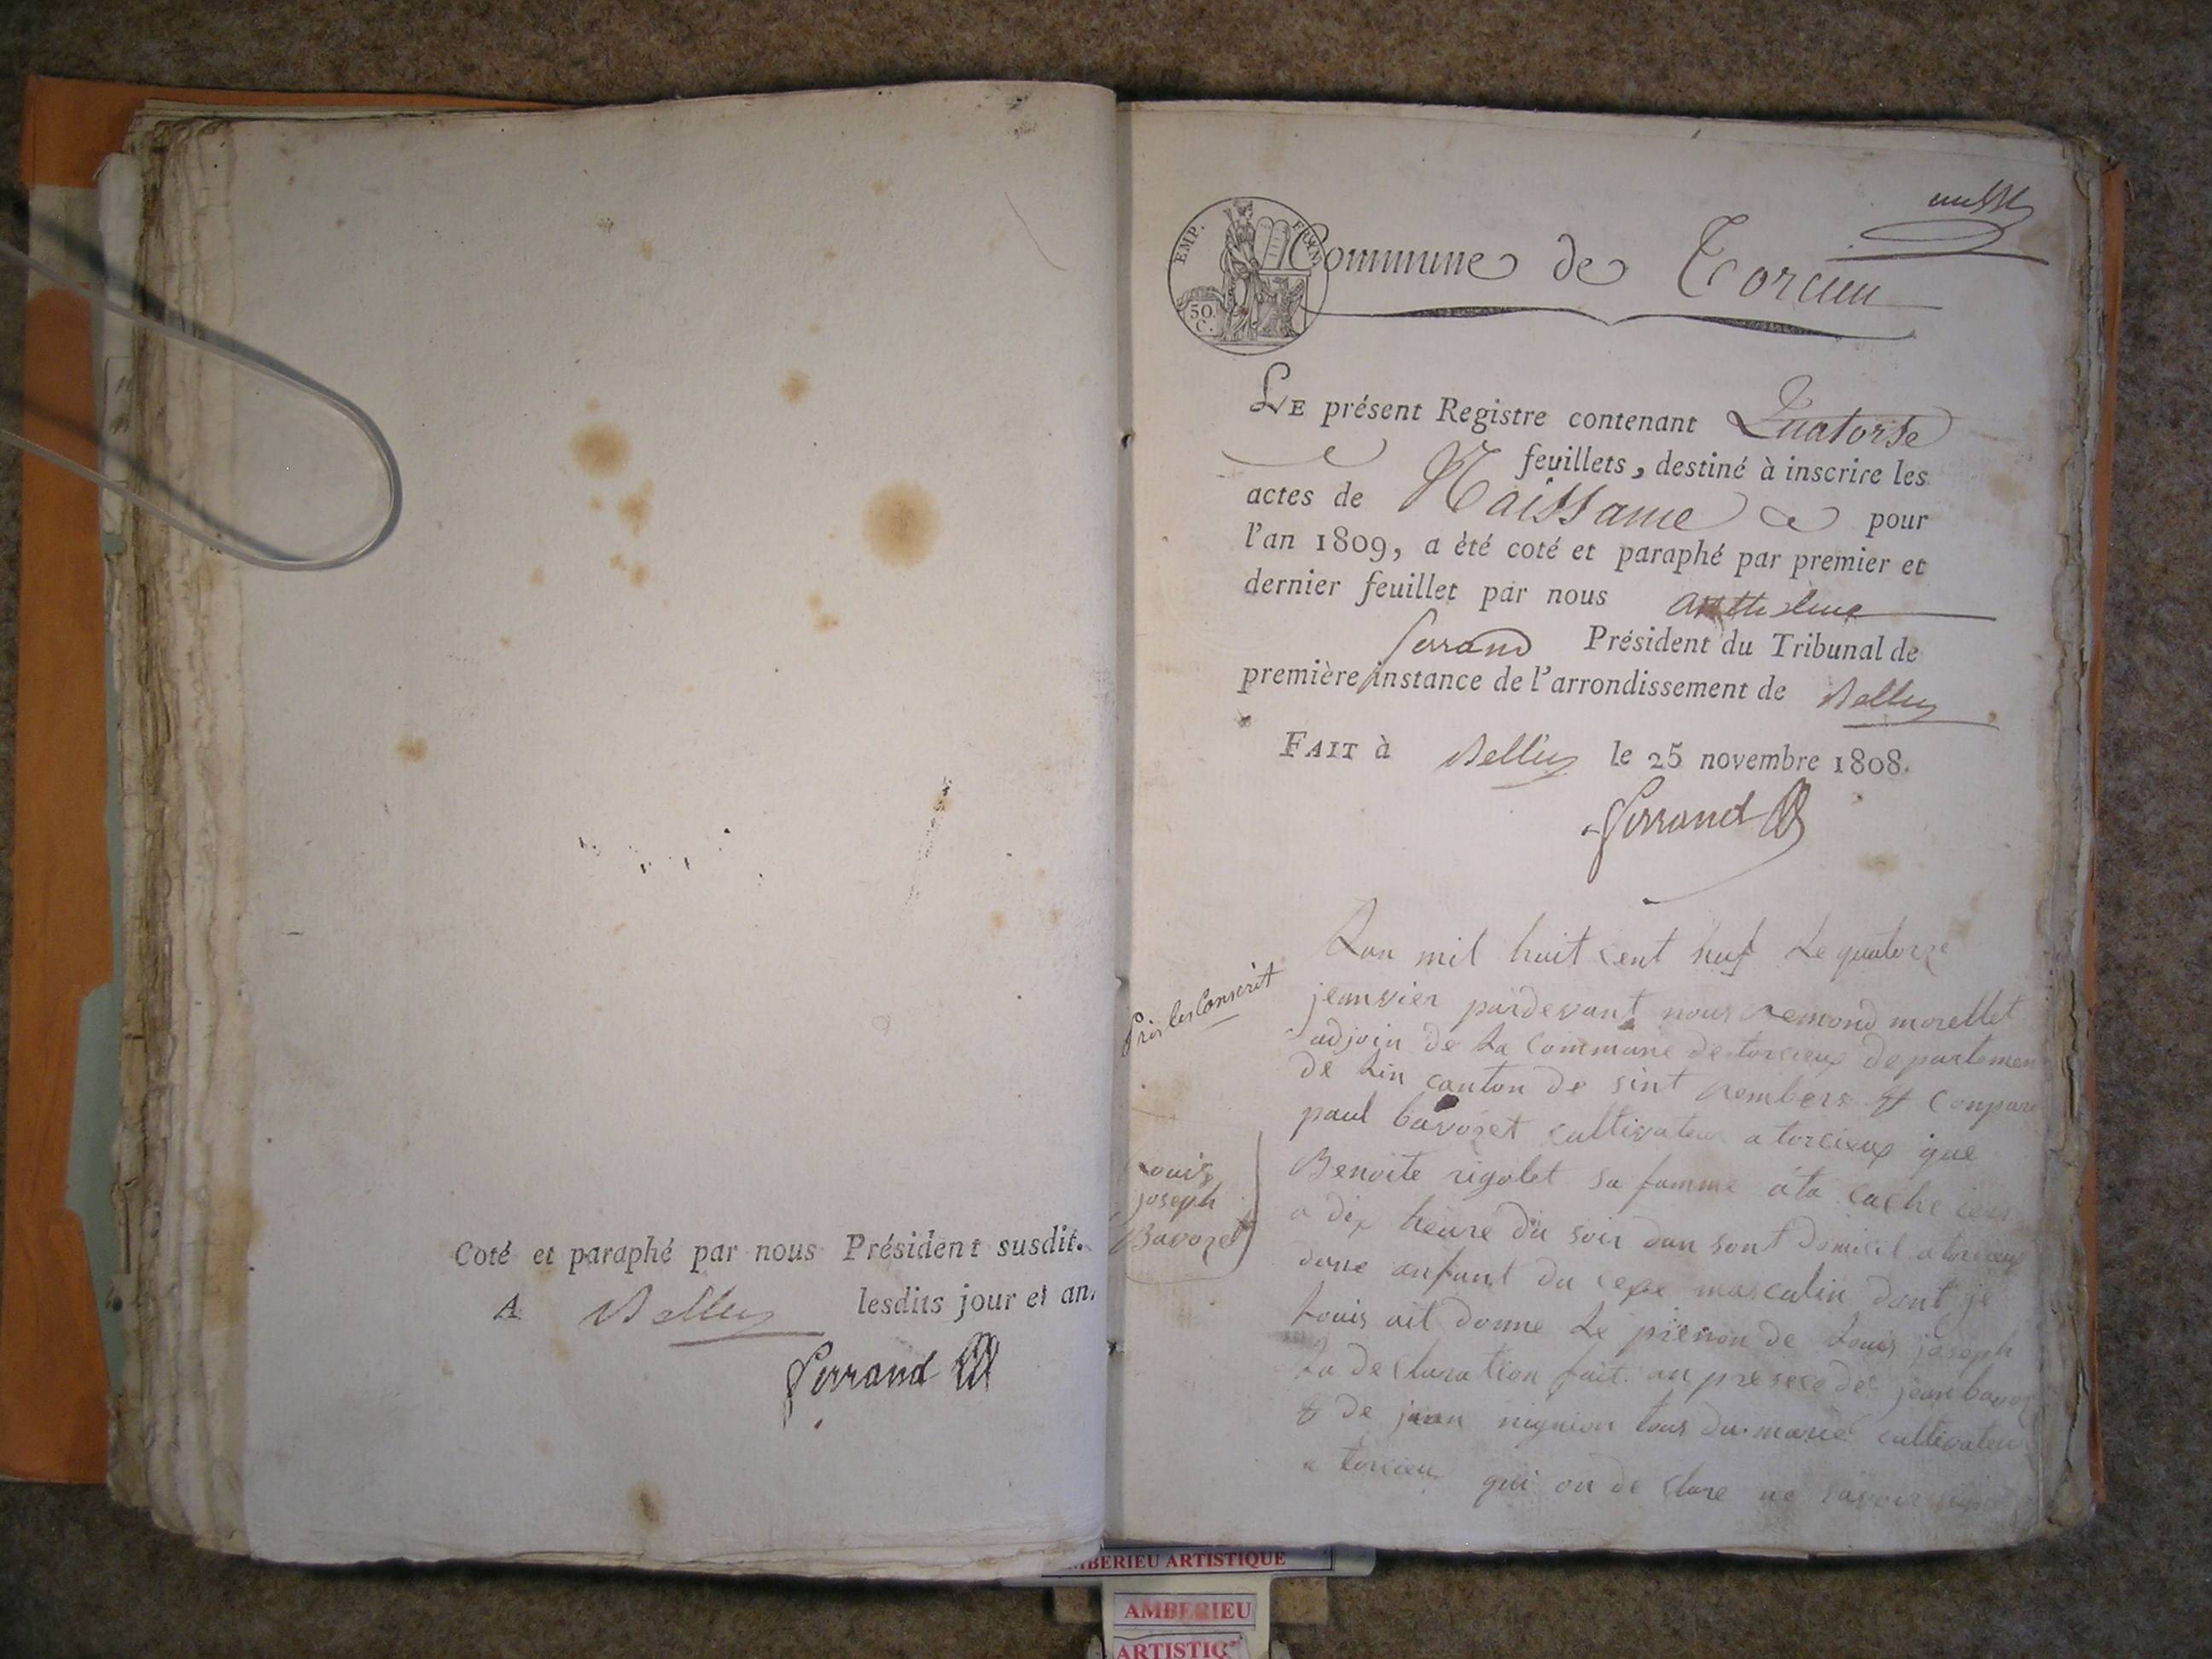 Coté et paraphé par nous Président susdit.
A Belley lesdits jour et an.
Ferrand
EMP. FRAN.
50.
C.
Commune de Torcieu
LE présent Registre contenant Quatorse
feuillets, destiné à inscrire les
actes de Naissance pour
l'an 1809, a été coté et paraphé par premier et
dernier feuillet par nous anthelme
ferrand Président du Tribunal de
première instance de l'arrondissement de Belley
FAIT à Belley le 25 novembre 1808.
Ferrand
Lan mil huit cent nuf Le quatorze
jeanvier pardevant nous remond morellet
adjoin de La Commune de torcieux departemen
de Lin canton de sint rembers
paul bavozet cultivateur a torcieux que
Benoite rigolet sa famme
a dix heure du soir dan sont domicil a torcieux
done anfant du cexe masculin dont je
Louis ait donne Le prenon de Louis joseph
La declaration fait an presece de jean
de jean nignion tous du cultivateur
a torcieu qui on de clare ne savoir
Louis
joseph
Bavozet
AMBERIEU ARTISTIQUE
AMBERIEU
ARTISTIQ